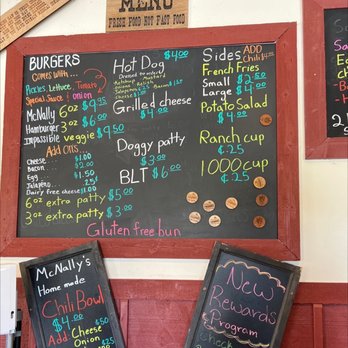 MENU
FRESH FOOD NOT FAST FOOD
BURGERS
Comes with...
Pickles, Lettuce, Tomato
Special Sauce & onion
McNally 6oz $9.95
Hamburger 3oz $6
Impossible veggie $9.50
Add Ons...
Cheese... $1.00
Bacon... $2.00
Egg... $1.50
Jalapeno... 25¢
Dairy free cheese $1.00
6oz extra patty $5.00
3oz extra patty $3.00
Hot Dog $4.00
Grilled cheese
$4.00
Doggy patty
$3.00
BLT $6.00
Gluten free bun
Sides ADD
French Fries
Small $2.50
Large $4.00
Potato Salad
$4.00
Ranch cup
¢25
1000 cup
¢25
McNally's
Home made
Chili Bowl
$4.00
Add Cheese
Onion
New
Rewards
Program